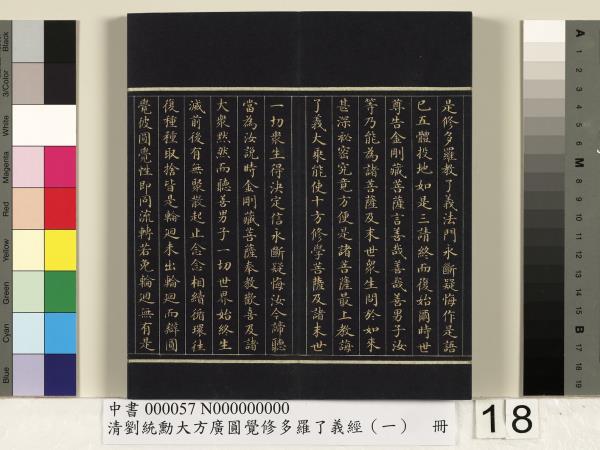 是修多羅教了義法門永斷疑悔作是語
已五體投地如是三請終而復始爾時世
尊告金剛藏菩薩言善哉善哉善男子汝
等乃能為諸菩薩及末世眾生問於如來
甚深祕密究竟方便是諸菩薩最上教誨
了義大乘能使十方修學菩薩及諸末世
一切眾生得決定信永斷疑悔汝今諦聽
當為汝說時金剛藏菩薩奉教歡喜及諸
大眾默然而聽善男子一切世界始終生
滅前後有無聚散起止念念相續循環往
復種種取捨皆是輪迴未出輪迴而辯圓
覺彼圓覺性即同流轉若免輪迴無有是
中書 000057 N000000000
清劉統勳大方廣圓覺修多羅了義經(一) 冊
18
Black
3/Color
White
Magenta
Red
Yellow
Green
Cyan
Blue
A
1
2
3
4
5
6
M
8
9
10
11
12
13
14
15
B
17
18
19